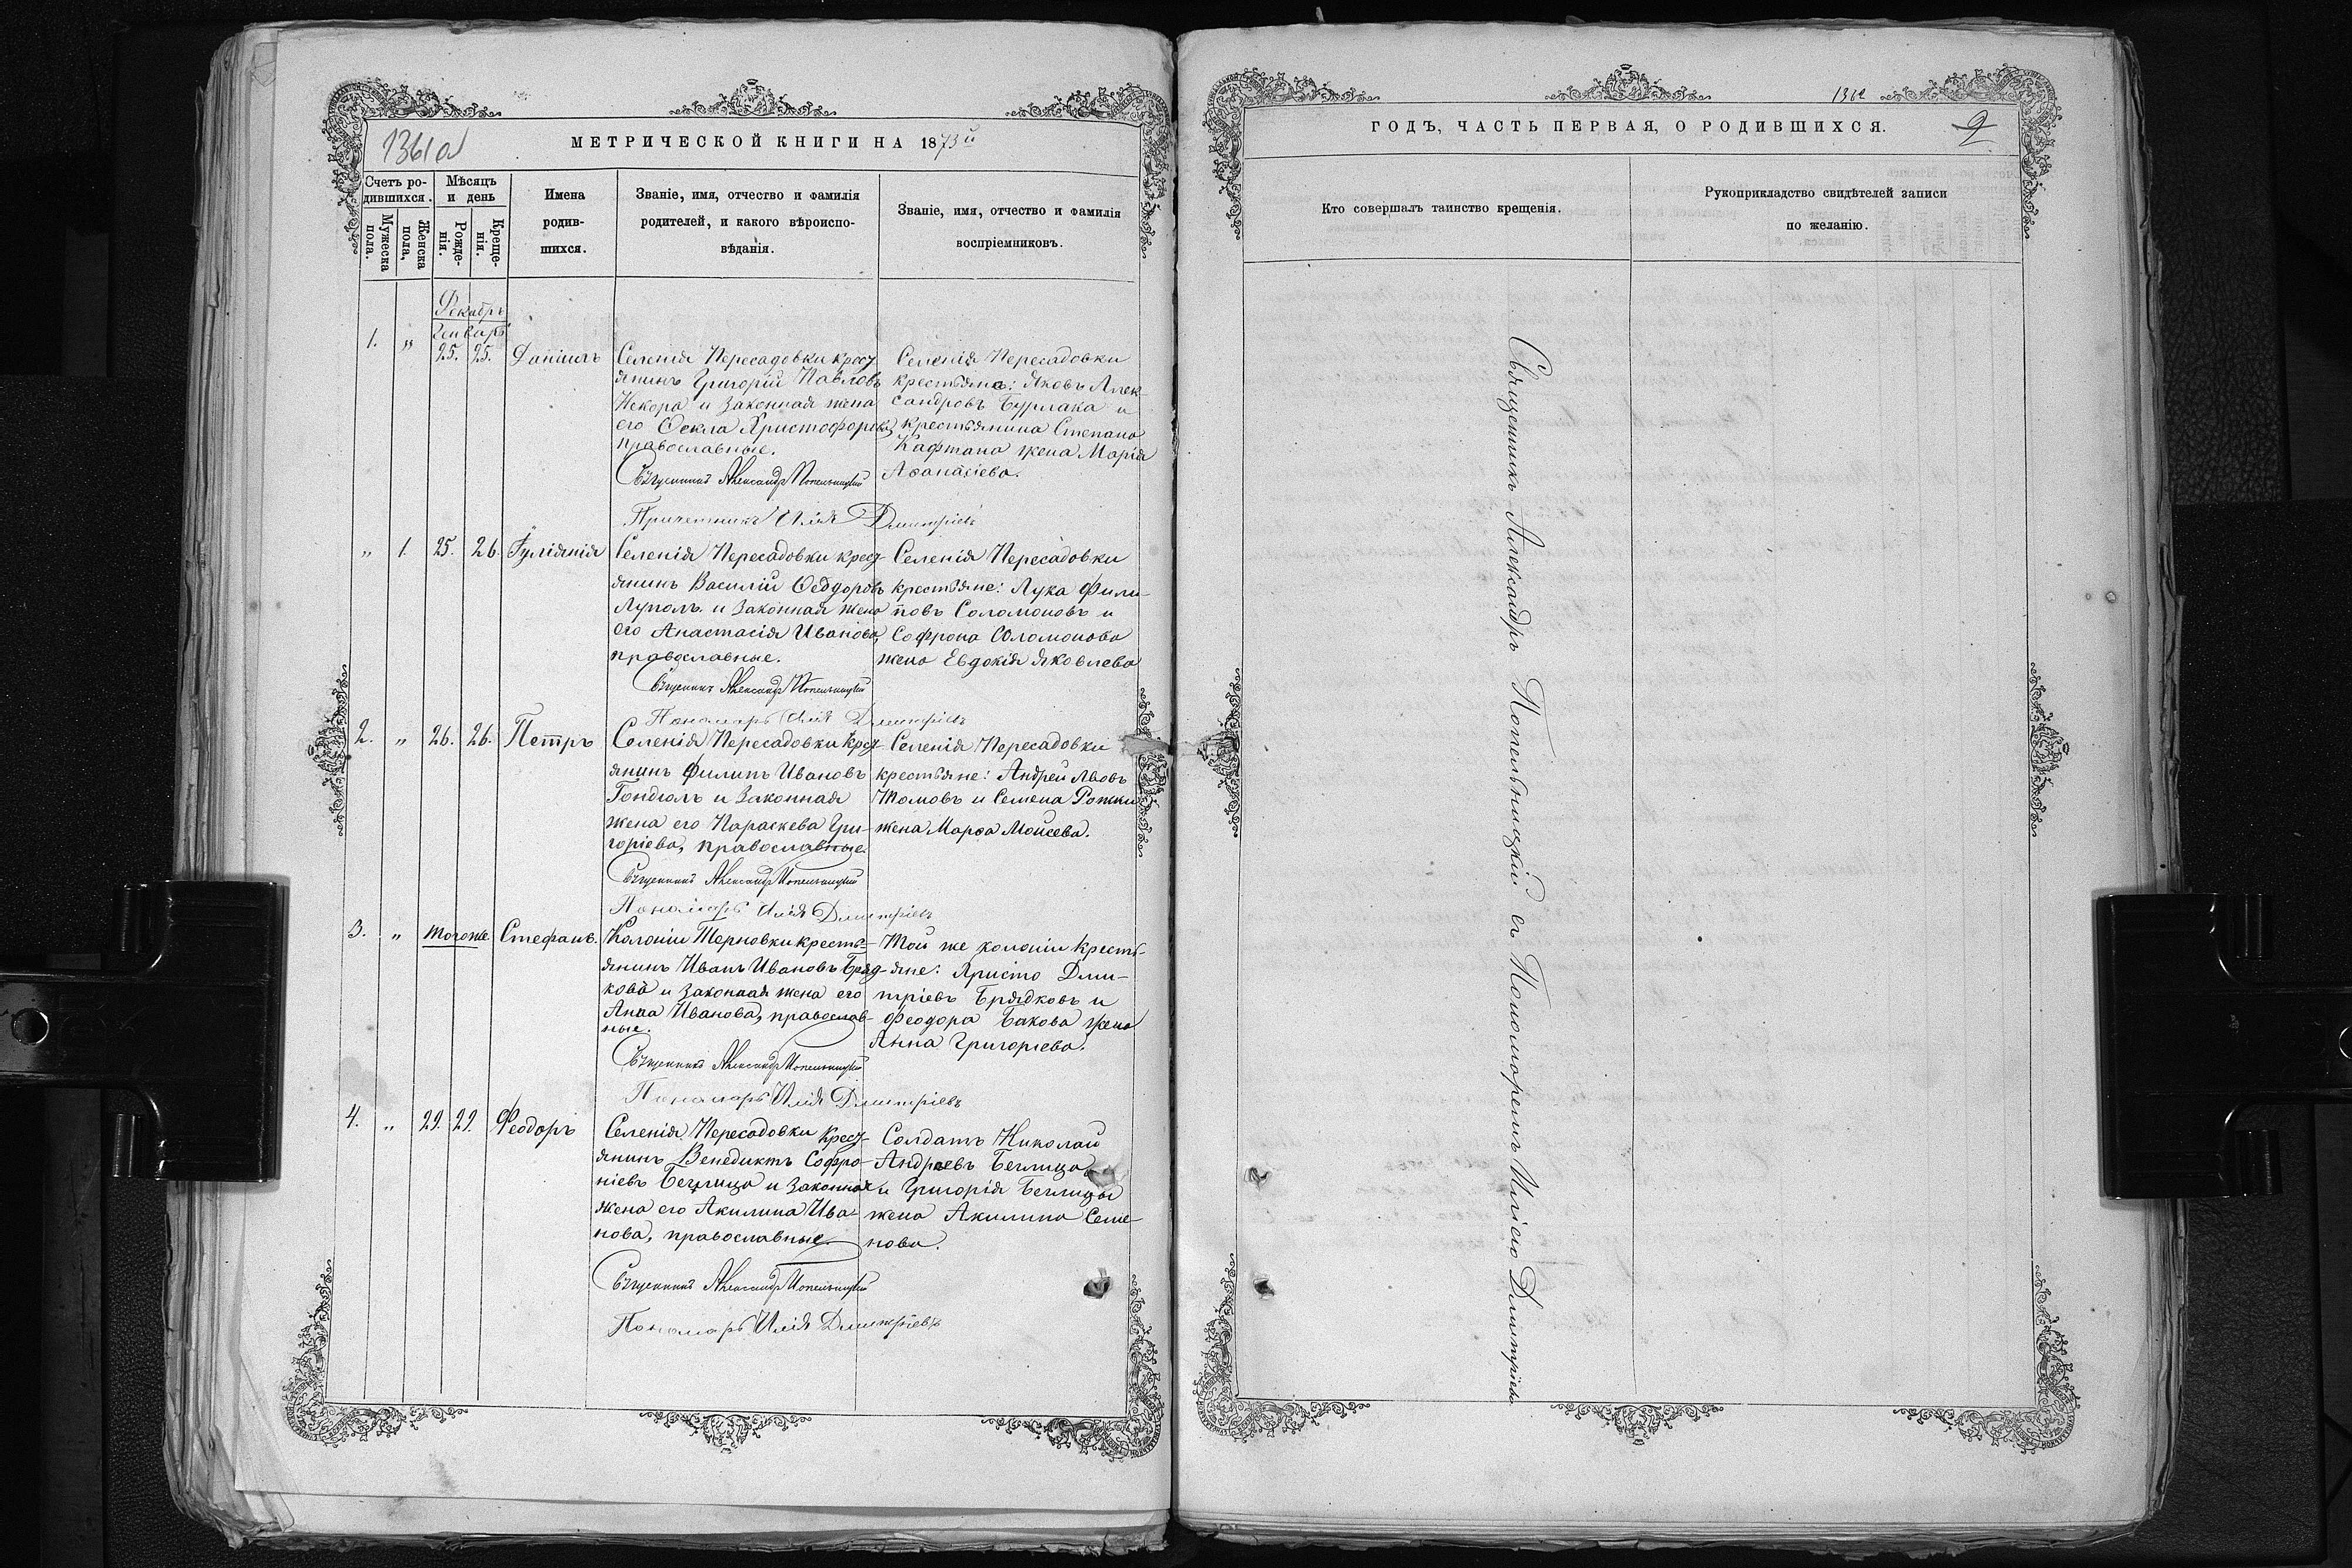 1361об
МЕТРИЧЕСКОЙ КНИГИ НА 1873й
Счетъ ро-
дившихся.
Мужеска
пола.
Женска
пола,
Мѣсяцъ
и день
Рожде-
нія.
Креще-
нія.
Имена
родив-
шихся.
Званіе, имя, отчество и фамилія
родителей, и какого вѣроиспо-
вѣданія.
Званіе, имя, отчество и фамилія
воспріемниковъ.
Декабрь
Генварь
1. „ 25. 25. Даніилъ
Селенія Пересадовки крест
янинъ Григорій Павловъ
Некора и законная жена
его Ѳекла Христофорова
православные.
Священникъ Александръ Попельницкій
Причетникъ Илія Дмитріевъ
Селенія Пересадовки
крестьяне: Яковъ Алек-
сандровъ Бурлака и
крестьянина Степана
Кафтана жена Марія
Аѳанасіева.
„ 1. 25. 26. Іуліянія
Селенія Пересадовки крест-
янинъ Василій Ѳеодоровъ
Луполъ и законная жена
его Анастасія Иванова,
православные.
Священникъ Александръ Попельницкій
Пономарь Илія Дмитріевъ
Селенія Пересадовки
крестьяне: Лука Фили-
повъ Соломоновъ и
Софрона Соломонова
жена Евдокія Яковлева
2. „ 26. 26. Петръ
Селенія Пересадовки крест-
янинъ Филипъ Ивановъ
Гондюлъ и законная
жена его Параскева Гри-
горіева, православные.
Священникъ Александръ Попельницкій
Пономарь Илія Дмитріевъ
Селенія Пересадовки
крестьяне: Андрей Львовъ
Томовъ и Семена Рошки
жена Марѳа Моисеева.
3. „ тогоже Стефанъ.
Колоніи Терновки кресть-
янинъ Иванъ Ивановъ Бряд-
ковъ и законная жена его
Анна Иванова, православ-
ные.
Священникъ Александръ Попельницкій
Пономарь Илія Дмитріевъ
Той же колоніи кресть-
яне: Христо Дми-
тріевъ Брядковъ и
Феодора Бакова жена
Анна Григоріева.
4. „ 29. 29. Феодоръ
Селенія Пересадовки крест-
янинъ Венедиктъ Софро-
ніевъ Беглица и законная
жена его Акилина Ива-
нова, православные.
Священникъ Александръ Попельницкій
Пономарь Илія Дмитріевъ
Солдатъ Николай
Андреевъ Беглица
и Григорія Беглицы
жена Акилина Семе-
нова.
1362
ГОДЪ, ЧАСТЬ ПЕРВАЯ, О РОДИВШИХСЯ.
2
Кто совершалъ таинство крещенія.
Рукоприкладство свидѣтелей записи
по желанію.
Священникъ Александръ Попельницкій съ Пономоремъ Иліею Дмитріевы